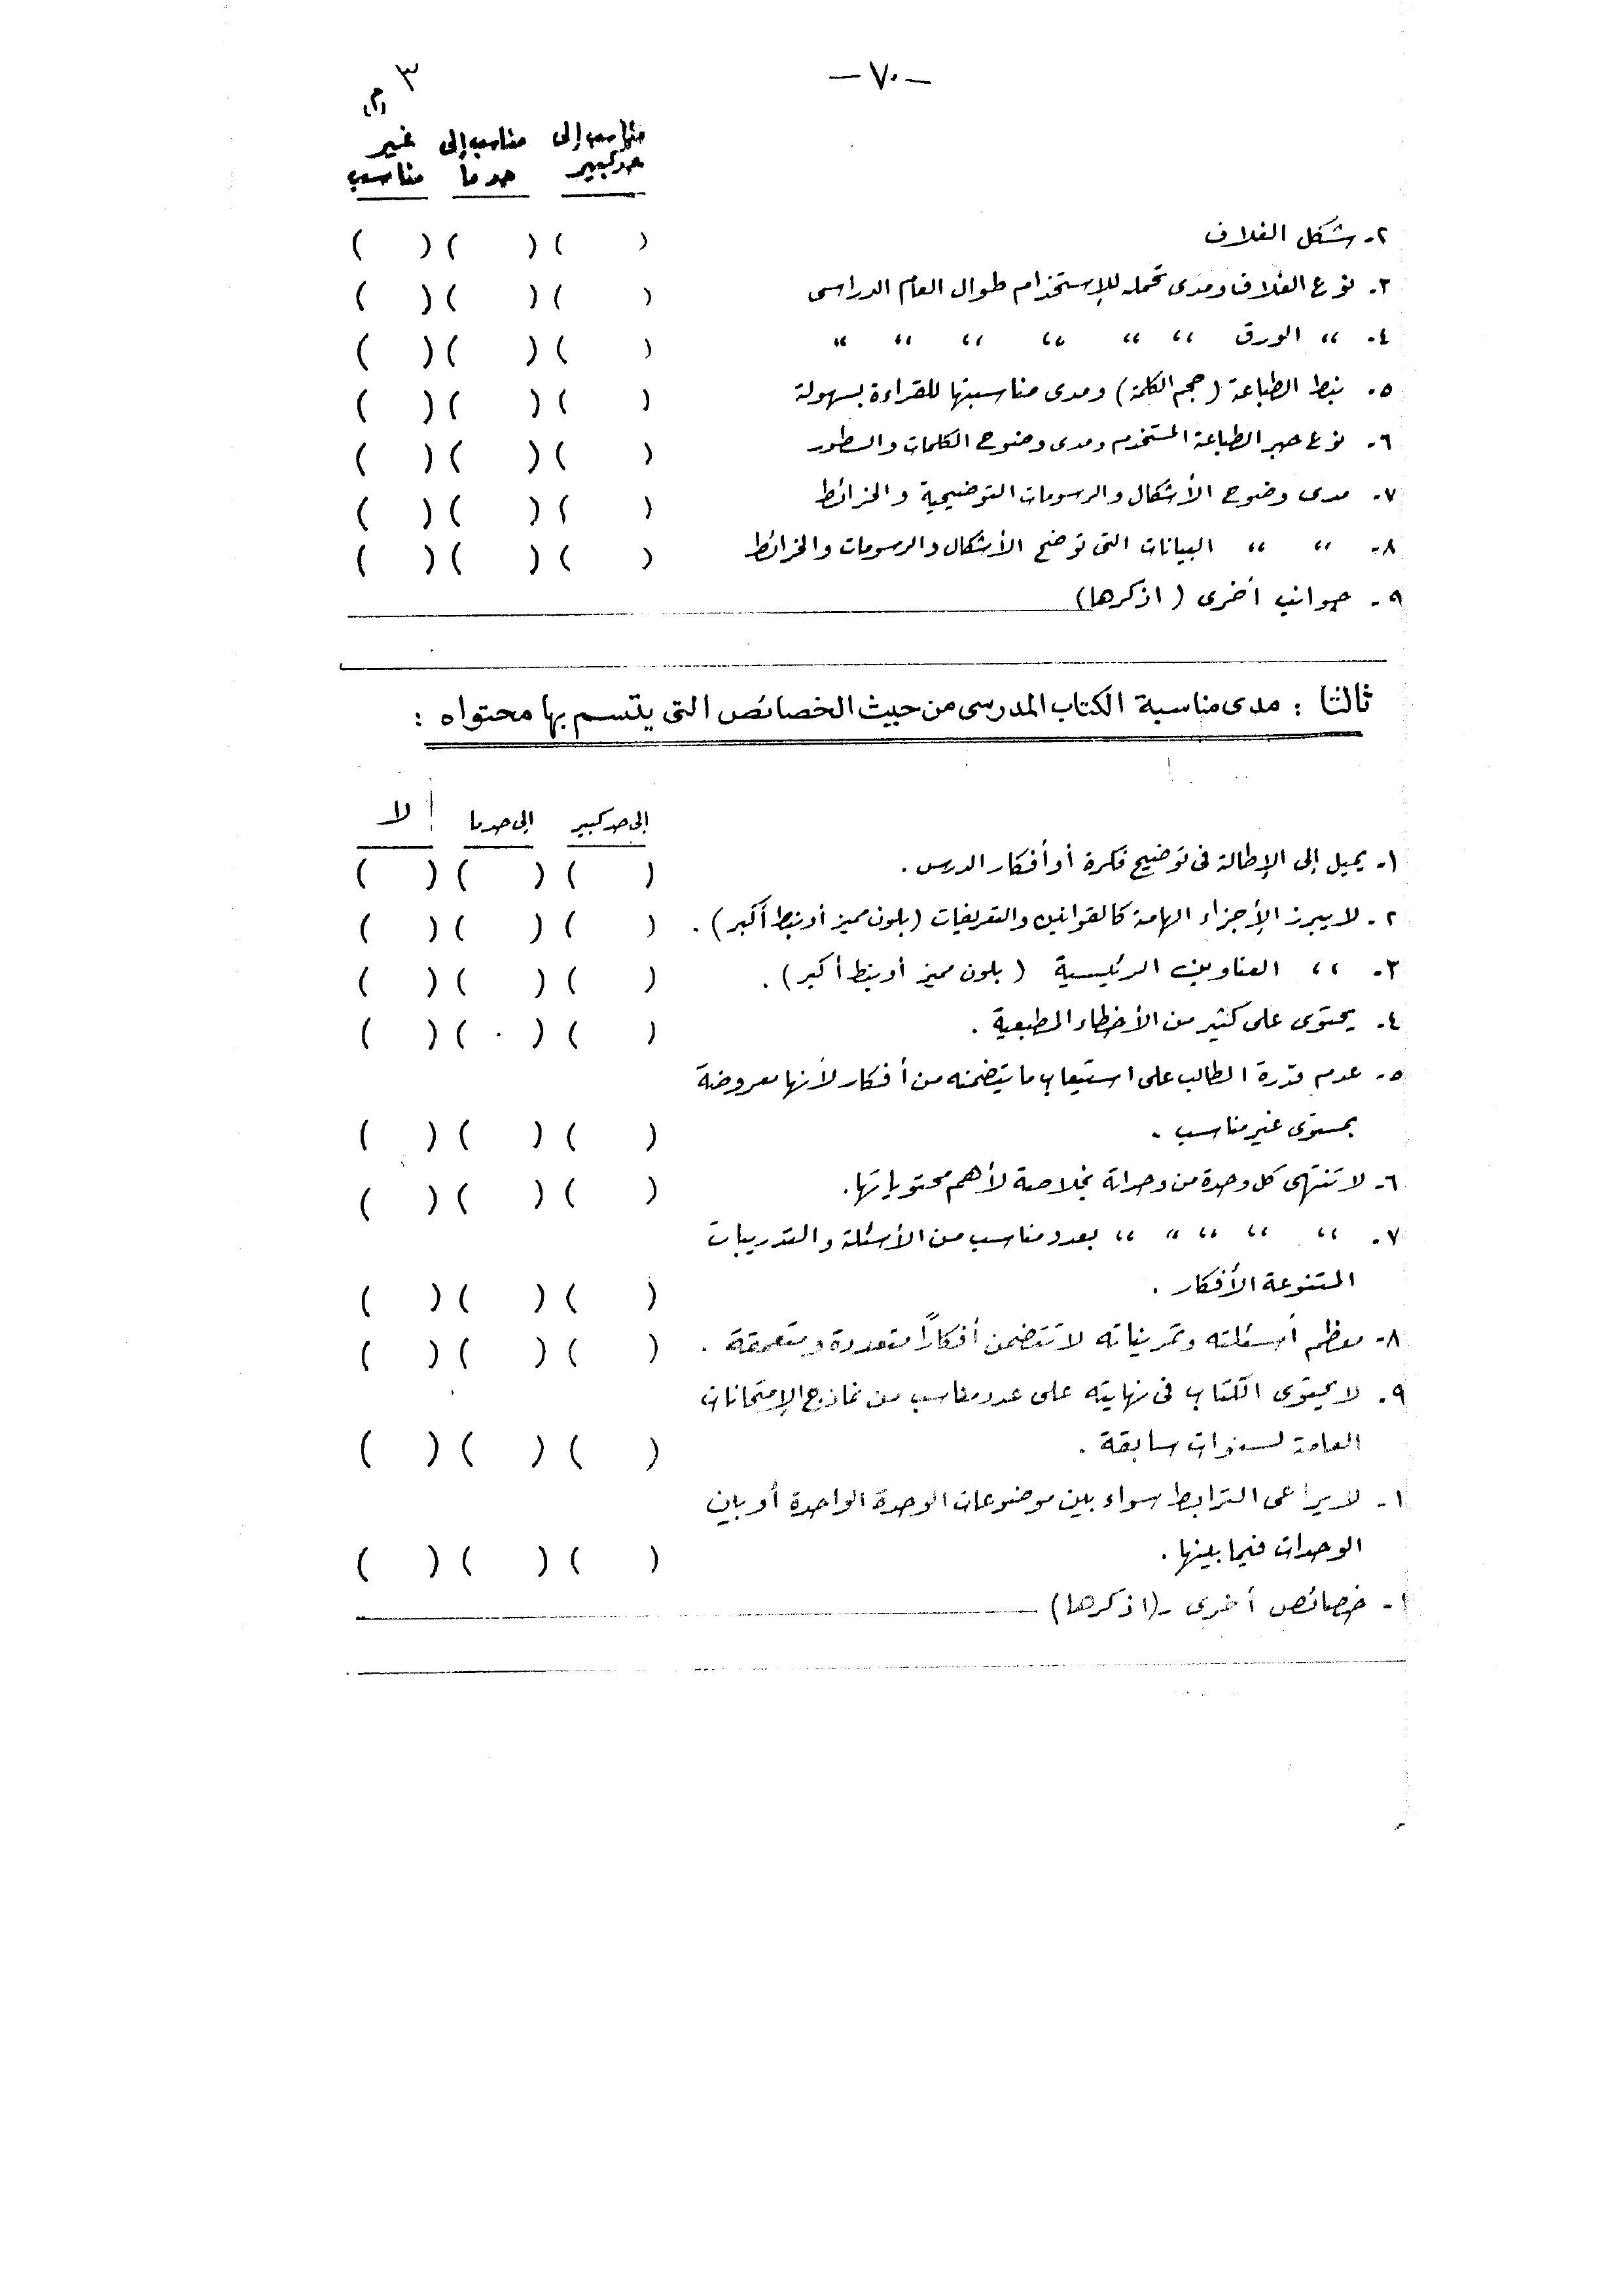 -٧٠-
٣
مناسب إلى مناسب إلى غير
حد كبير حد ما مناسب
٢- شكل الغلاف ( ) ( ) ( )
٣- نوع الغلاف ومدى تحمله للإستخدام طوال العام الدراسى ( ) ( ) ( )
٤- ،، الورق ،، ،، ،، ،، ،، ،، ( ) ( ) ( )
٥- بنط الطباعة (حجم الكلمة) ومدى مناسبتها للقراءة بسهولة ( ) ( ) ( )
٦- نوع حبر الطباعة المستخدم ومدى وضوح الكلمات والسطور ( ) ( ) ( )
٧- مدى وضوح الأشكال والرسومات التوضيحية والخرائط ( ) ( ) ( )
٨- ،، ،، البيانات التى توضح الأشكال والرسومات والخرائط ( ) ( ) ( )
٩- جوانب أخرى (اذكرها)
ثالثا : مدى مناسبة الكتاب المدرسى من حيث الخصائص التى يتسم بها محتواه :
إلى حد كبير إلى حد ما لا
١- يميل إلى الإطالة فى توضيح فكرة أو أفكار الدرس . ( ) ( ) ( )
٢- لا يبرز الأجزاء الهامة كالقوانين والتعريفات (بلون مميز أو بنط أكبر) . ( ) ( ) ( )
٣- ،، العناوين الرئيسية (بلون مميز أو بنط أكبر) . ( ) ( ) ( )
٤- يحتوى على كثير من الأخطاء المطبعية . ( ) ( ) ( )
٥- عدم قدرة الطالب على استيعاب ما يتضمنه من أفكار لأنها معروضة
بمستوى غير مناسب . ( ) ( ) ( )
٦- لا تنتهى كل وحدة من وحداته بخلاصة لأهم محتوياتها . ( ) ( ) ( )
٧- ،، ،، ،، ،، ،، بعدد مناسب من الأسئلة والتدريبات
المتنوعة الأفكار . ( ) ( ) ( )
٨- معظم أسئلته وتمريناته لا تتضمن أفكارًا متعددة ومتعمقة . ( ) ( ) ( )
٩- لا يحتوى الكتاب فى نهايته على عدد مناسب من نماذج الإمتحانات
العامة لسنوات سابقة . ( ) ( ) ( )
١- لا يراعى الترابط سواء بين موضوعات الوحدة الواحدة أو بين
الوحدات فيما بينها . ( ) ( ) ( )
١- خصائص أخرى - (اذكرها)